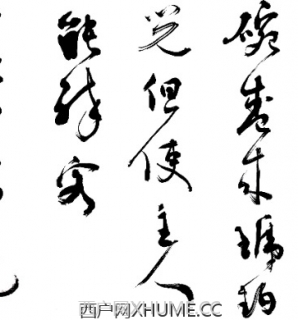 碗盛来琥珀
光但使主人
能醉客
西户网XHUME.CC